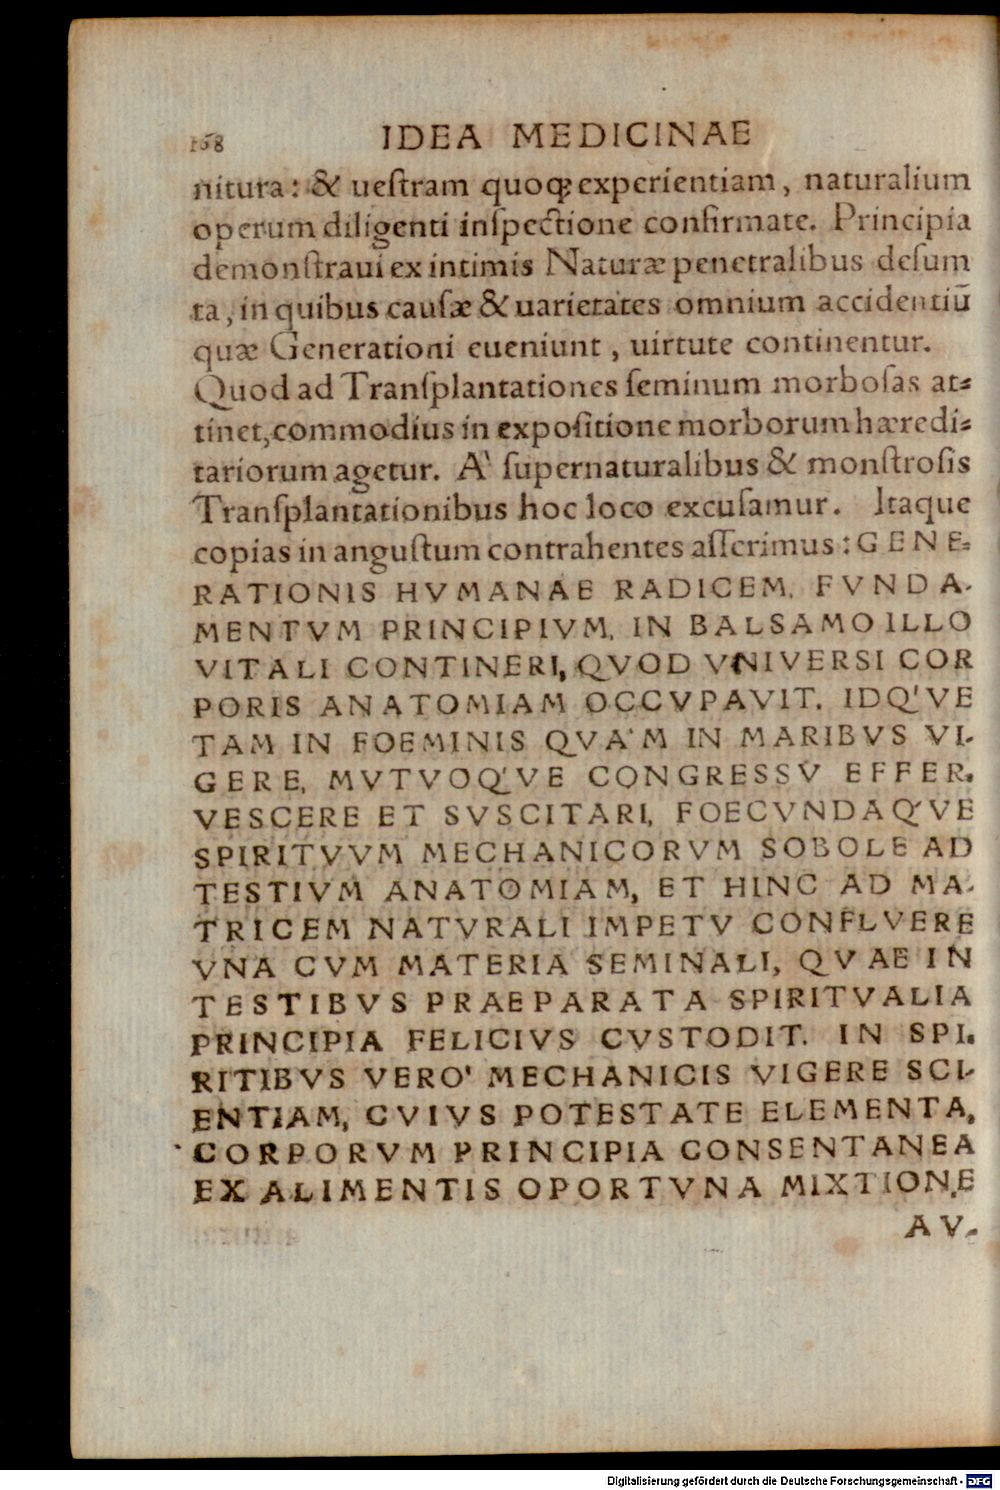 168 IDEA MEDICINAE
nitura: & ueſtram quoqꝫ experientiam, naturalium
operum diligenti inſpectione confirmate. Principia
demonſtraui ex intimis Naturæ penetralibus deſum
ta, in quibus cauſæ & uarietates omnium accidentiū
quæ Generationi eueniunt, uirtute continentur.
Quod ad Tranſplantationes ſeminum morboſas at⸗
tinet, commodius in expoſitione morborum hæredi⸗
tariorum agetur. A' ſupernaturalibus & monſtroſis
Tranſplantationibus hoc loco excuſamur. Itaque
copias in anguſtum contrahentes aſſerimus: GENE⸗
RATIONIS HVMANAE RADICEM, FVNDA-
MENTVM PRINCIPIVM, IN BALSAMO ILLO
VITALI CONTINERI, QVOD VNIVERSI COR
PORIS ANATOMIAM OCCVPAVIT. IDQ'VE
TAM IN FOEMINIS QVA'M IN MARIBVS VI-
GERE, MVTVOQ'VE CONGRESSV EFFER-
VESCERE ET SVSCITARI, FOECVNDAQ'VE
SPIRITVVM MECHANICORVM SOBOLE AD
TESTIVM ANATOMIAM, ET HINC AD MA-
TRICEM NATVRALI IMPETV CONFLVERE
VNA CVM MATERIA SEMINALI, QVAE IN
TESTIBVS PRAEPARATA SPIRITVALIA
PRINCIPIA FELICIVS CVSTODIT. IN SPI-
RITIBVS VERO' MECHANICIS VIGERE SCI-
ENTIAM, CVIVS POTESTATE ELEMENTA,
CORPORVM PRINCIPIA CONSENTANEA
EX ALIMENTIS OPORTVNA MIXTIONE
AV-
Digitalisierung gefördert durch die Deutsche Forschungsgemeinschaft - DFG